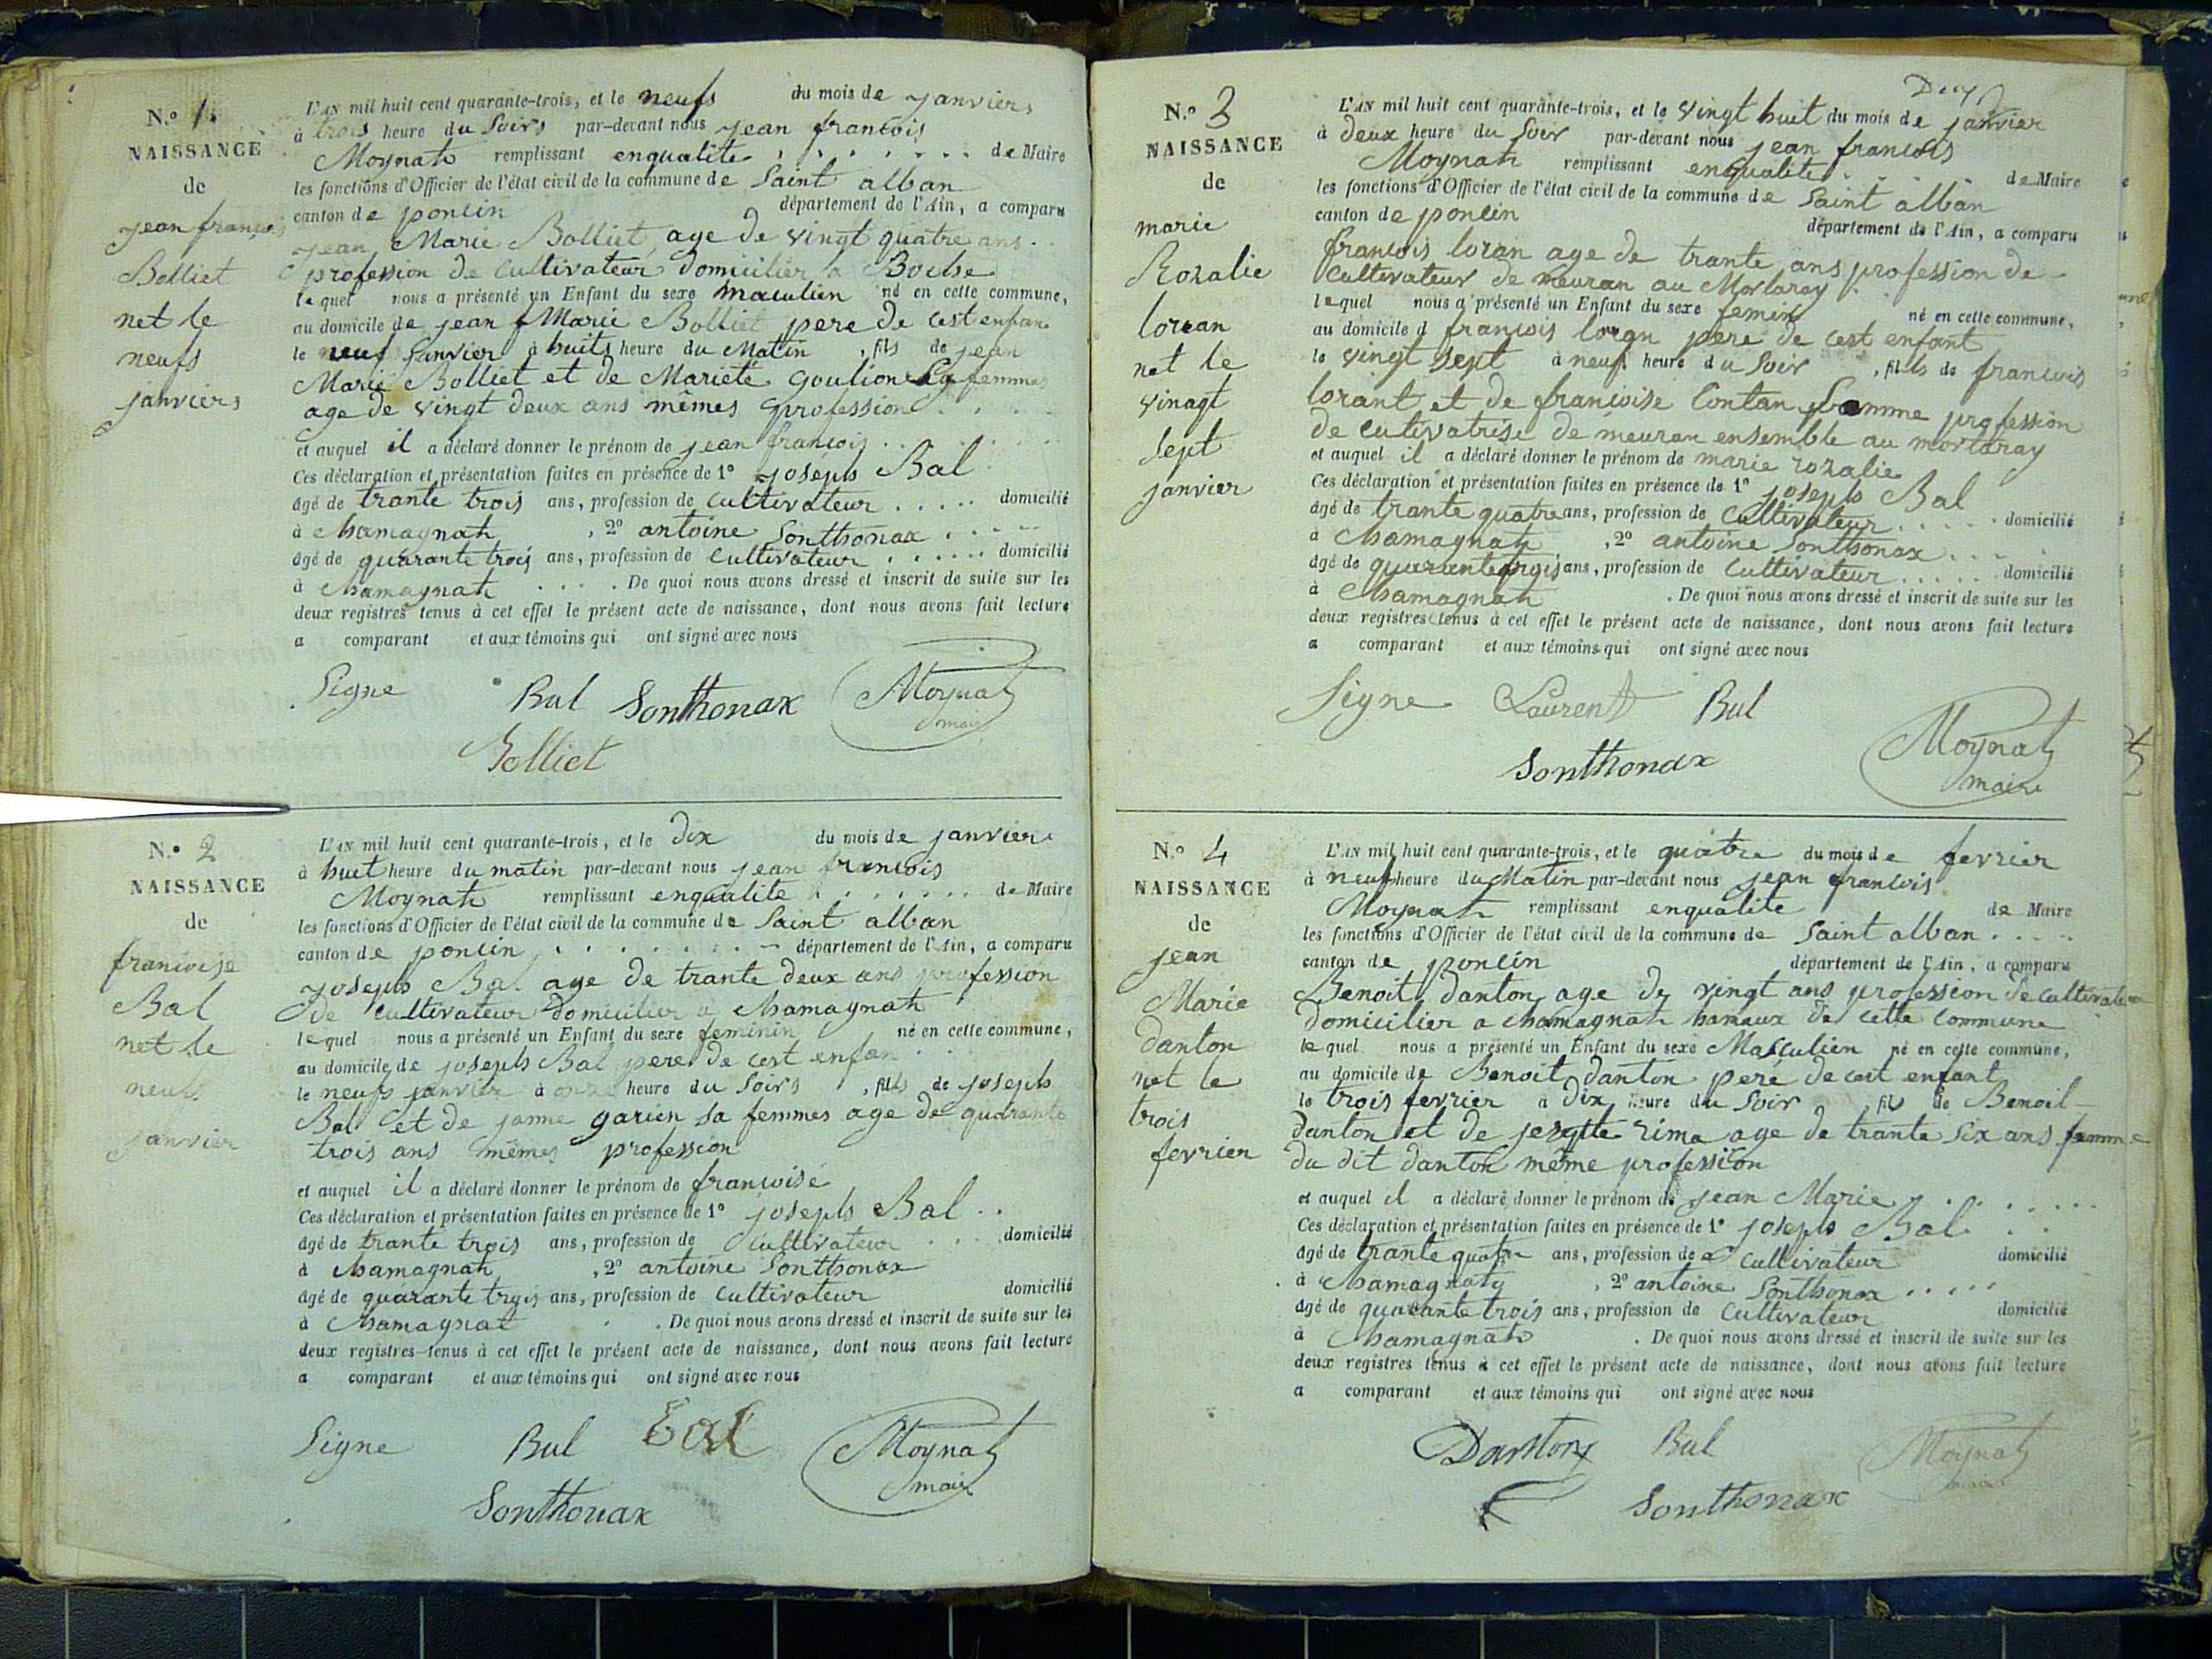 N.º 1.
NAISSANCE
de
jean francois
Bolliet
net le
neufs
janviers
L'AN mil huit cent quarante-trois, et le neufs du mois de janviers
à trois heure du Soirs par-devant nous jean francois
Moynat remplissant enqualite de Maire
les fonctions d'Officier de l'état civil de la commune de Saint alban
canton de poncin département de l'Ain, a comparu
jean Marie Bolliet age de vingt quatre ans
profession de cultivateur domicilier a Boche
lequel nous a présenté un Enfant du sexe maculien né en cette commune,
au domicile de jean Marie Bolliet pere de cest enfan
le neuf janvier à huits heure du Matin, fils de jean
Marie Bolliet et de Mariete goulion Sa femmes
age de vingt deux ans mêmes profession
et auquel il a déclaré donner le prénom de jean francois
Ces déclaration et présentation faites en présence de 1º josephs Bal
âgé de trante trois ans, profession de cultivateur domicilié
à chamagnat, 2º antoine Sonthonax
âgé de quarante trois ans, profession de cultivateur domicilié
à chamagnat. De quoi nous avons dressé et inscrit de suite sur les
deux registres tenus à cet effet le présent acte de naissance, dont nous avons fait lecture
a comparant et aux témoins qui ont signé avec nous
Signe Bal Sonthonax Moynat
maire
Bolliet
N.º 2
NAISSANCE
de
francoise
Bal
net le
neufs
janvier
L'AN mil huit cent quarante-trois, et le dix du mois de janviere
à huet heure du matin par-devant nous jean francois
Moynat remplissant enqualite de Maire
les fonctions d'Officier de l'état civil de la commune de Saint alban
canton de poncin département de l'Ain, a comparu
josephs Bal age de trante deux ans profession
de cultivateur domicilier a chamagnat
lequel nous a présenté un Enfant du sexe feminin né en cette commune,
au domicile de josephs Bal pere de cest enfan
le neufs janvier à onze heure du Soirs, fills de josephs
Bal et de janne garien sa femmes age de quarante
trois ans mêmes profession
et auquel il a déclaré donner le prénom de francoise
Ces déclaration et présentation faites en présence de 1º josephs Bal
âgé de trante trois ans, profession de cultivateur domicilié
à chamagnat, 2º antoine Sonthonax
âgé de quarante trois ans, profession de cultivateur domicilié
à chamagnat. De quoi nous avons dressé et inscrit de suite sur les
deux registres tenus à cet effet le présent acte de naissance, dont nous avons fait lecture
a comparant et aux témoins qui ont signé avec nous
Signe Bal Bal Moynat
maire
Sonthonax
N.º 3
NAISSANCE
de
marie
Rozalie
loran
net le
vinagt
Sept
janvier
L'AN mil huit cent quarante-trois, et le vingt huit du mois de janvier
à deux heure du Soir par-devant nous jean francois
Moynat remplissant enqualite de Maire
les fonctions d'Officier de l'état civil de la commune de Saint alban
canton de poncin département de l'Ain, a comparu
francois loran age de trante ans profession de
cultivateur de meuran au Mortaray
lequel nous a présenté un Enfant du sexe feminin né en cette commune,
au domicile d francois loran pere de cest enfant
le vingt sept à neuf heure du Soir, fills de francois
lorant et de francoise Contan femme profession
de cutivatrise de meuran ensemble au mortaray
et auquel il a déclaré donner le prénom de marie rozalie
Ces déclaration et présentation faites en présence de 1º josephs Bal
âgé de trante quatre ans, profession de cultivateur domicilié
à chamagnat, 2º antoine Sonthonax
âgé de quarante trois ans, profession de cultivateur domicilié
à chamagnat. De quoi nous avons dressé et inscrit de suite sur les
deux registres tenus à cet effet le présent acte de naissance, dont nous avons fait lecture
a comparant et aux témoins qui ont signé avec nous
Signe Laurent Bal
Sonthonax Moynat
maire
N.º 4
NAISSANCE
de
jean
Marie
danton
net le
trois
fevrier
L'AN mil huit cent quarante-trois, et le quatre du mois de fevrier
à neuf heure du Matin par-devant nous jean francois
Moynat remplissant enqualite de Maire
les fonctions d'Officier de l'état civil de la commune de Saint alban
canton de poncin département de l'Ain, a comparu
Benoit danton age de vingt ans profession de cultivateur
domicilier a chamagnat hamaux de cette commune
lequel nous a présenté un Enfant du sexe Masculien né en cette commune,
au domicile de Benoit danton pere de cest enfant
le trois fevrier à dix heure du Soir, fils de Benoit
danton et de josephte rima age de trante six ans femme
du dit danton même profession
et auquel il a déclaré donner le prénom de jean Marie
Ces déclaration et présentation faites en présence de 1º josephs Bal
âgé de trante quatre ans, profession de cultivateur domicilié
à chamagnat, 2º antoine Sonthonax
âgé de quarante trois ans, profession de cultivateur domicilié
à chamagnat. De quoi nous avons dressé et inscrit de suite sur les
deux registres tenus à cet effet le présent acte de naissance, dont nous avons fait lecture
a comparant et aux témoins qui ont signé avec nous
Danton Bal Moynat
maire
Sonthonax